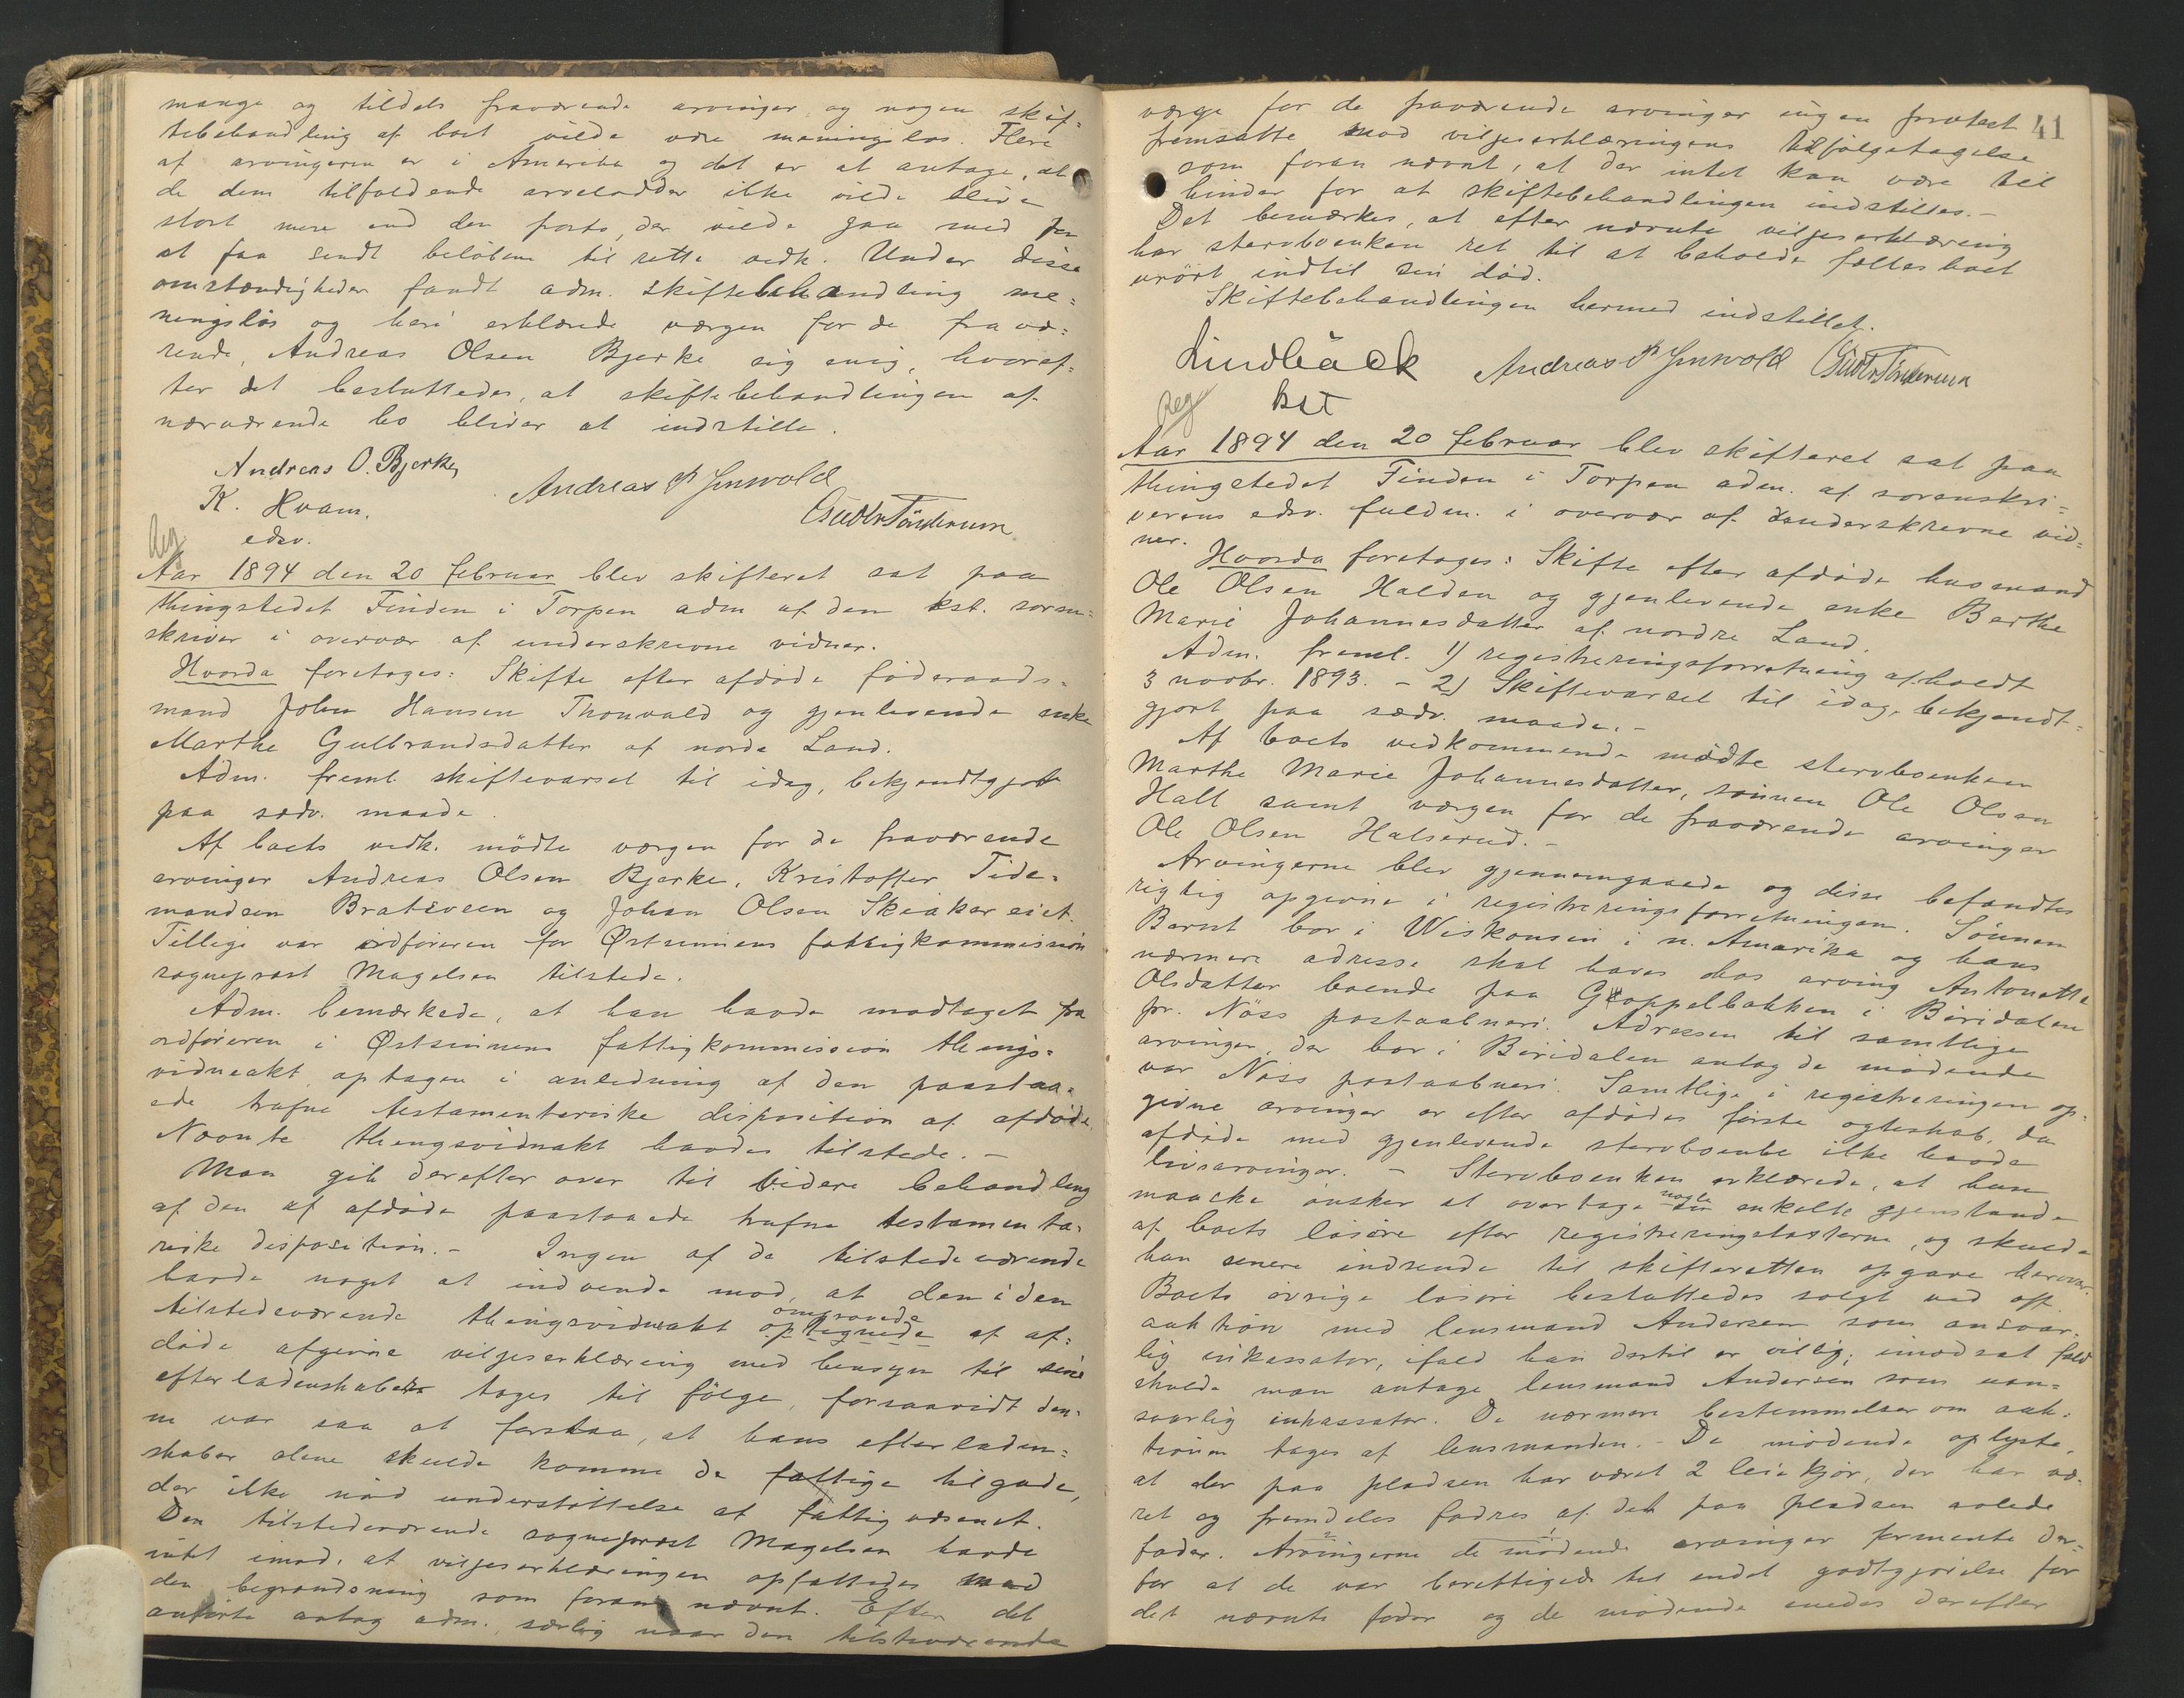 mange og tildels fraværende arvinger, og nogen skif=
tebehandling af boet vilde være meningsløs. Flere
af arvingerne er i Amerika og det er at antage, at
de dem tilfaldende arvelodder ikke vilde blive
stort mere end den porto, der vilde gaa med for
at faa sendt beløbene til rette vedk. Under disse
omstændigheder fandt adm. skiftebehandling me=
ningsløs og heri erklærede værgen for de fravæ=
rende, Andreas Olsen Bjerke sig enig, hvoref=
ter det besluttedes, at skiftebehandlingen af
nærværende bo bliver at indstille.
Andreas O. Bjerke,
K. Hvam.
edsv.
Andreas Jenswold
Reg
Aar 1894 den 20 februar blev skifteret sat paa
thingstedet Finden i Torpen adm af den kst. soren=
skriver i overvær af underskrevne vidner.
Hvorda foretoges: Skifte efter afdøde føderaads=
mand John Hansen Thonvald og gjenlevende enke
Marthe Gulbrandsdatter af nordre Land.
Adm. freml. skiftevarsel til idag, bekjendtgjort
paa sedv. maade.
Af boets vedk. mødte værgen for de fraværende
arvinger Andreas Olsen Bjerke, Kristoffer Tide=
mandsen Bratsveen og Johan Olsen Skiaker eiet.
Tillige var ordføreren for Østsinnens fattigkommission
sogneprest Magelsen tilstede.
Adm. bemærkede, at han havde modtaget fra
ordføreren i Østsinnens fattigkommission things=
vidneakt optagen i anledning af den paastaa=
ede trufne testamentariske disposition af afdøde.
Nævnte thingsvidneakt havdes tilstede. -
Man gik derefter over til videre behandling
af den af afdøde paastaaede trufne testamenta=
riske disposition. - Ingen af de tilstedeværende
havde noget at indvende mod, at den i den
tilstedeværende thingsvidneakt omprovede
optegnede af af=
døde afgivne viljeserklæring med hensyn til sine
efterladenskaber tages til følge, forsaavidt den=
ne var saa at forstaa, at hans efterladen=
skaber alene skulde komme de fattige tilgode,
der ikke nød understøttelse af fattigvæsenet.
Den tilstedeværende sogneprest Magelsen havde
intet imod, at viljeserklæringen opfattedes med
den begrændsning som foran nævnt. Efter det
anførte antog adm., særlig naar den tilstedeværende
41
værge for de fraværende arvinger ingen protest
fremsatte mod viljeserklæringens tilfølgetagelse
som foran nævnt, at der intet kan være til
hinder for at skiftebehandlingen indstilles. -
Det bemærkes, at efter nævnte viljeserklæring
har stervboenken ret til at beholde fælles boet
urørt indtil sin død.
Skiftebehandlingen hermed indstillet.
Lindbäck
kst
Andreas Jenswold
Reg
Aar 1894 den 20 februar blev skifteret sat paa
thingstedet Finden i Torpen adm. af sorenskri=
verens edsv. fuldm. i overvær af underskrevne vid=
ner.
Hvorda foretoges: Skifte efter afdøde husmand
Ole Olsen Halden og gjenlevende enke Barthe
Marie Johannesdatter af nordre Land.
Adm. freml. 1) registreringsforretning afholdt
3 novbr. 1893. - 2) Skiftevarsel til idag, bekjendt=
gjort paa sedv. maade. -
Af boets vedkommende mødte stervboenken
Marthe Marie Johannesdatter, sønnen Ole Olsen
Hall samt værgen for de fraværende arvinger
Ole Olsen Halserud. -
Arvingerne blev gjennemgaaede og disse befandtes
rigtig opgivne i registreringsforretningen. Sønnen
Bernt bor i Wiskonsin i n. Amerika og hans
nærmere adresse skal haves hos arving Antonette
Olsdatter boende paa Groppelbakken i Biridalen
pr. Næss postaabneri. Adressen til samtlige
arvinger, der bor i Biridalen antog de mødende
var Næss postaabneri. Samtlige i registreringen op=
givne arvinger er efter afdødes første egteskab, da
afdøde med gjenlevende stervboenke ikke havde
livsarvinger. - Stervboenken erklærede, at hun
maaske ønsker at overtage nogle enkelte gjenstande
af boets løsøre efter registreringstaksterne, og skulde
hun senere indsende til skifteretten opgave herover.
Boets øvrige løsøre besluttedes solgt ved off.
auktion med lensmand Andersen som ansvar=
lig inkassator, ifald han dertil er villig; imodsat fald
skulde man antage lensmand Andersen som uan=
svarlig inkassator. De nærmere bestemmelser om auk=
tionen tages af lensmanden. - De mødende oplyste,
at der paa pladsen har været 2 leiekjør, der har væ=
ret og fremdeles fødres af det paa pladsen avlede
foder. Arvingerne de mødende arvinger formente der=
for at de var berettigede til endel godtgjørelse for
det nævnte foder og de mødende enedes derefter